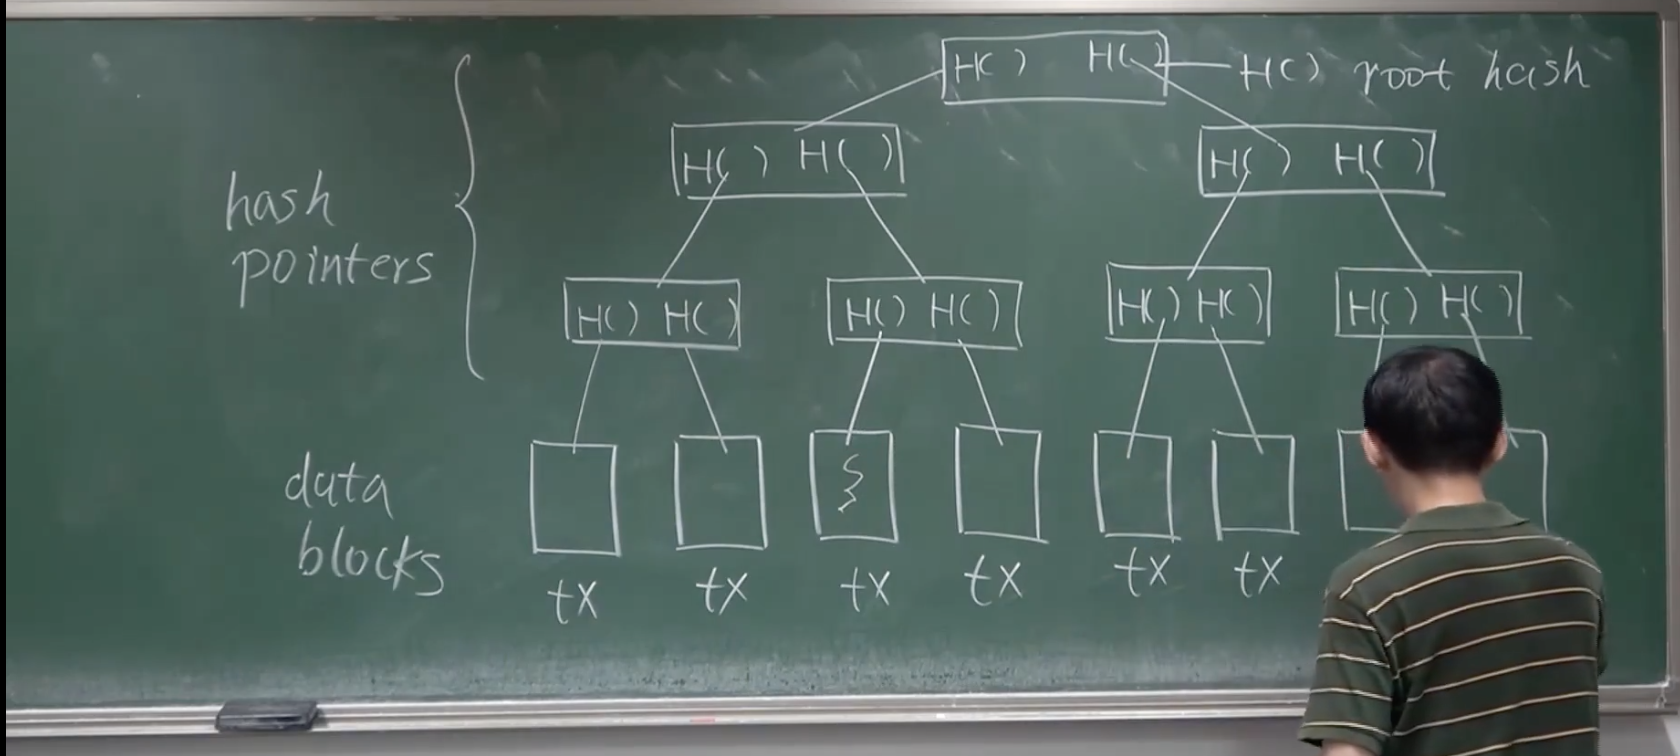 H( ) H( ) H( ) root hash
H( ) H( ) H( ) H( )
hash
pointers
H( ) H( ) H( ) H( ) H( ) H( ) H( ) H( )
data
blocks
tx tx tx tx tx tx